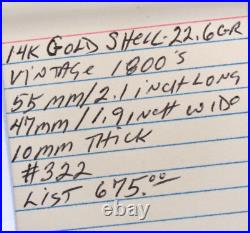 14K GOLD SHELL-22.6GR
VINTAGE 1800'S
55mm/2.1 inch LONG
47mm/1.9 inch WIDE
10mm THICK
#322
LIST 675.00
ebay